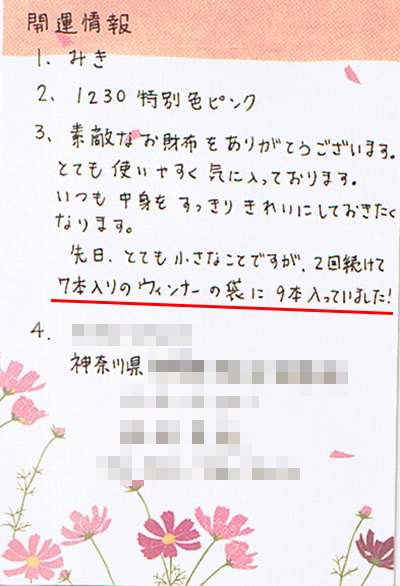 開運情報
1. みき
2. 1230 特別色ピンク
3. 素敵なお財布をありがとうございます。
とても使いやすく気に入っております。
いつも中身をすっきりきれいにしておきたく
なります。
先日、とても小さなことですが、2回続けて
7本入りのウィンナーの袋に9本入っていました!
4.
神奈川県